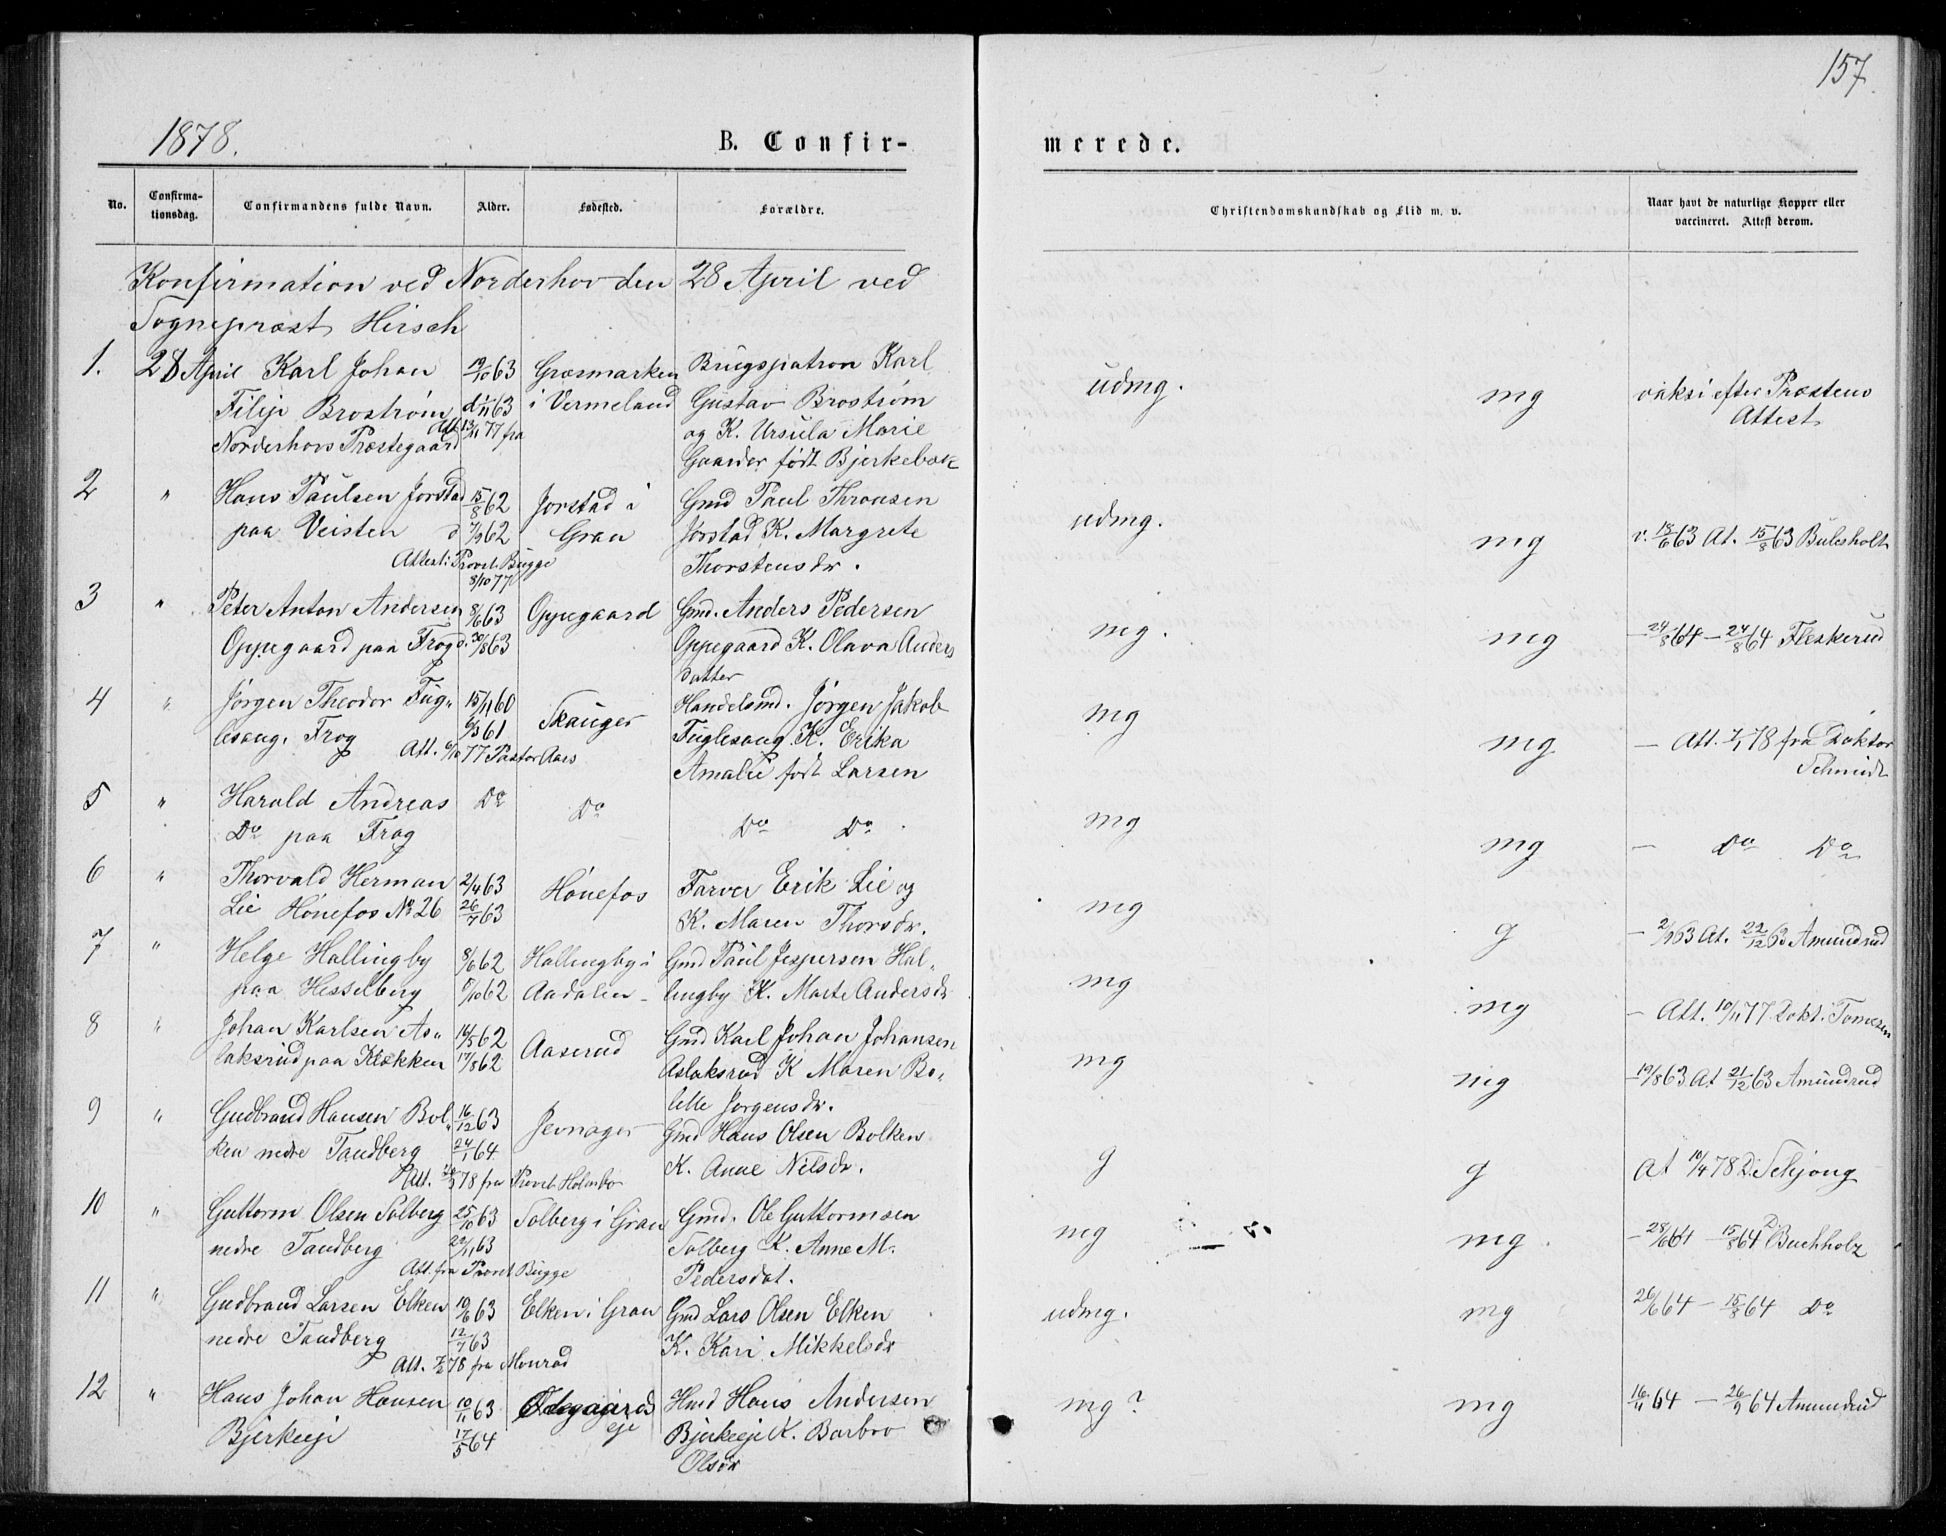 157.
1878. B. Confir- merede.
No. Confirma-tionsdag. Confirmandens fulde Navn. Alder. Fødested. Forældre. Christendomskundskab og Flid m. v. Naar havt de naturlige Kopper eller vaccineret. Attest derom.
Konfirmation ved Norderhov den 28 April ved
Sogneprest Hirsch
1. 28 April Karl Johan 19/10 63 Græsmarken Brugspatron Karl udmg. mg vaksi efter Præstens
Filip Brostrøm d 1/11 63 i Vermeland Gustav Brostrøm Attest
Norderhovs Præstegaard Att. 13/11 77 fra og K. Ursula Marie
Gaarder født Bjerkebæk
2 " Hans Paulsen Jorstad 15/8 62 Jorstad i Gmd Paul Thronsen udmg. mg v. 18/6 63 At. 15/8 63 Bulesholt
paa Veisten d 7/9 62 Gran Jorstad K. Margrete
Attest: Provst Bugge Thorstensdr.
8/10 77
3 " Peter Anton Andersen 8/6 63 Oppegaard Gmd. Anders Pedersen mg. mg - 24/8 64 - 24/8 64 Fleskerud
Oppegaard paa Frog d. 30/8 63 Oppegaard K. Olava Anders
datter
4 " Jørgen Theodor Fug- 15/11 60 Skauger Handelsmd. Jørgen Jakob mg mg - Att. 7/1 78 fra Doktor
lesang. Frog 6/3 61 Fuglesang K. Erika Schmidt
Att. 6/10 77 Pastor Aars Amalie født Larsen
5 " Harald Andreas Do Do Do Do mg mg - Do Do
Do paa Frog
6 " Thorvald Herman 2/4 63 Hønefos Farver Erik Lie og mg g - 2/9 63 At. 22/12 63 Amundrud
Lie Hønefos No 26 26/7 63 K. Maren Thorsdr.
7 " Helge Hallingby 8/6 62 Hallingby i Gmd Paul Jespersen Hal- mg mg - Att. 10/11 77 Dokt. Tomesen
paa Hesselberg 5/10 62 Aadalen - lingby K. Marte Andersdr
8 " Johan Karlsen As- 16/5 62 Aaserud Gmd Karl Johan Johansen mg mg - 19/8 63 At 21/12 63 Amundrud
laksrud paa Klækken 17/8 62 Aslaksrud K Maren Bo-
lette Jørgensdr.
9 " Gudbrand Hansen Bol- 16/12 63 Jevnager Gmd Hans Olsen Bolken g g At 10/4 78 D. Schjong
ken nedre Tandberg 24/1 64 K. Anne Nilsdr.
Att. 20/3 78 fra Provst Holmbo
10 " Guttorm Olsen Solberg 25/10 63 Solberg i Gran Gmd. Ole Guttormsen mg mg - 28/6 64 - 15/8 64 D Buchholz
nedre Tandberg 22/11 63 Solberg K. Anne M.
Att. fra Provst Bugge Pedersdat.
11 " Gudbrand Larsen Elken 19/6 63 Elken i Gran Gmd Lars Olsen Elken udmg. mg 26/6 64 - 15/8 64 Do
nedre Tandberg 12/7 63 K. Kari Mikkelsdr
Att. 7/2 78 fra Monrad
12 " Hans Johan Hansen 10/11 63 Ødegaards Hmd Hans Andersen mg? mg 16/4 64 - 26/9 64 Amundrud
Bjerkeeje 17/5 64 eje Bjerkeeje K. Barbro
Olsdr